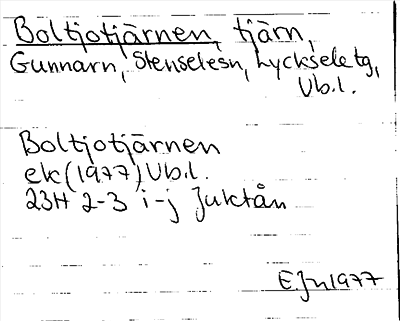 Boltjotjärnen, tjärn,
Gunnarn, Stenselesn, Lycksele tg,
Vb.l.
Boltjotjärnen
ek (1977) Vb.l.
23H 2-3 i-j Juktån
E.Jn 1977